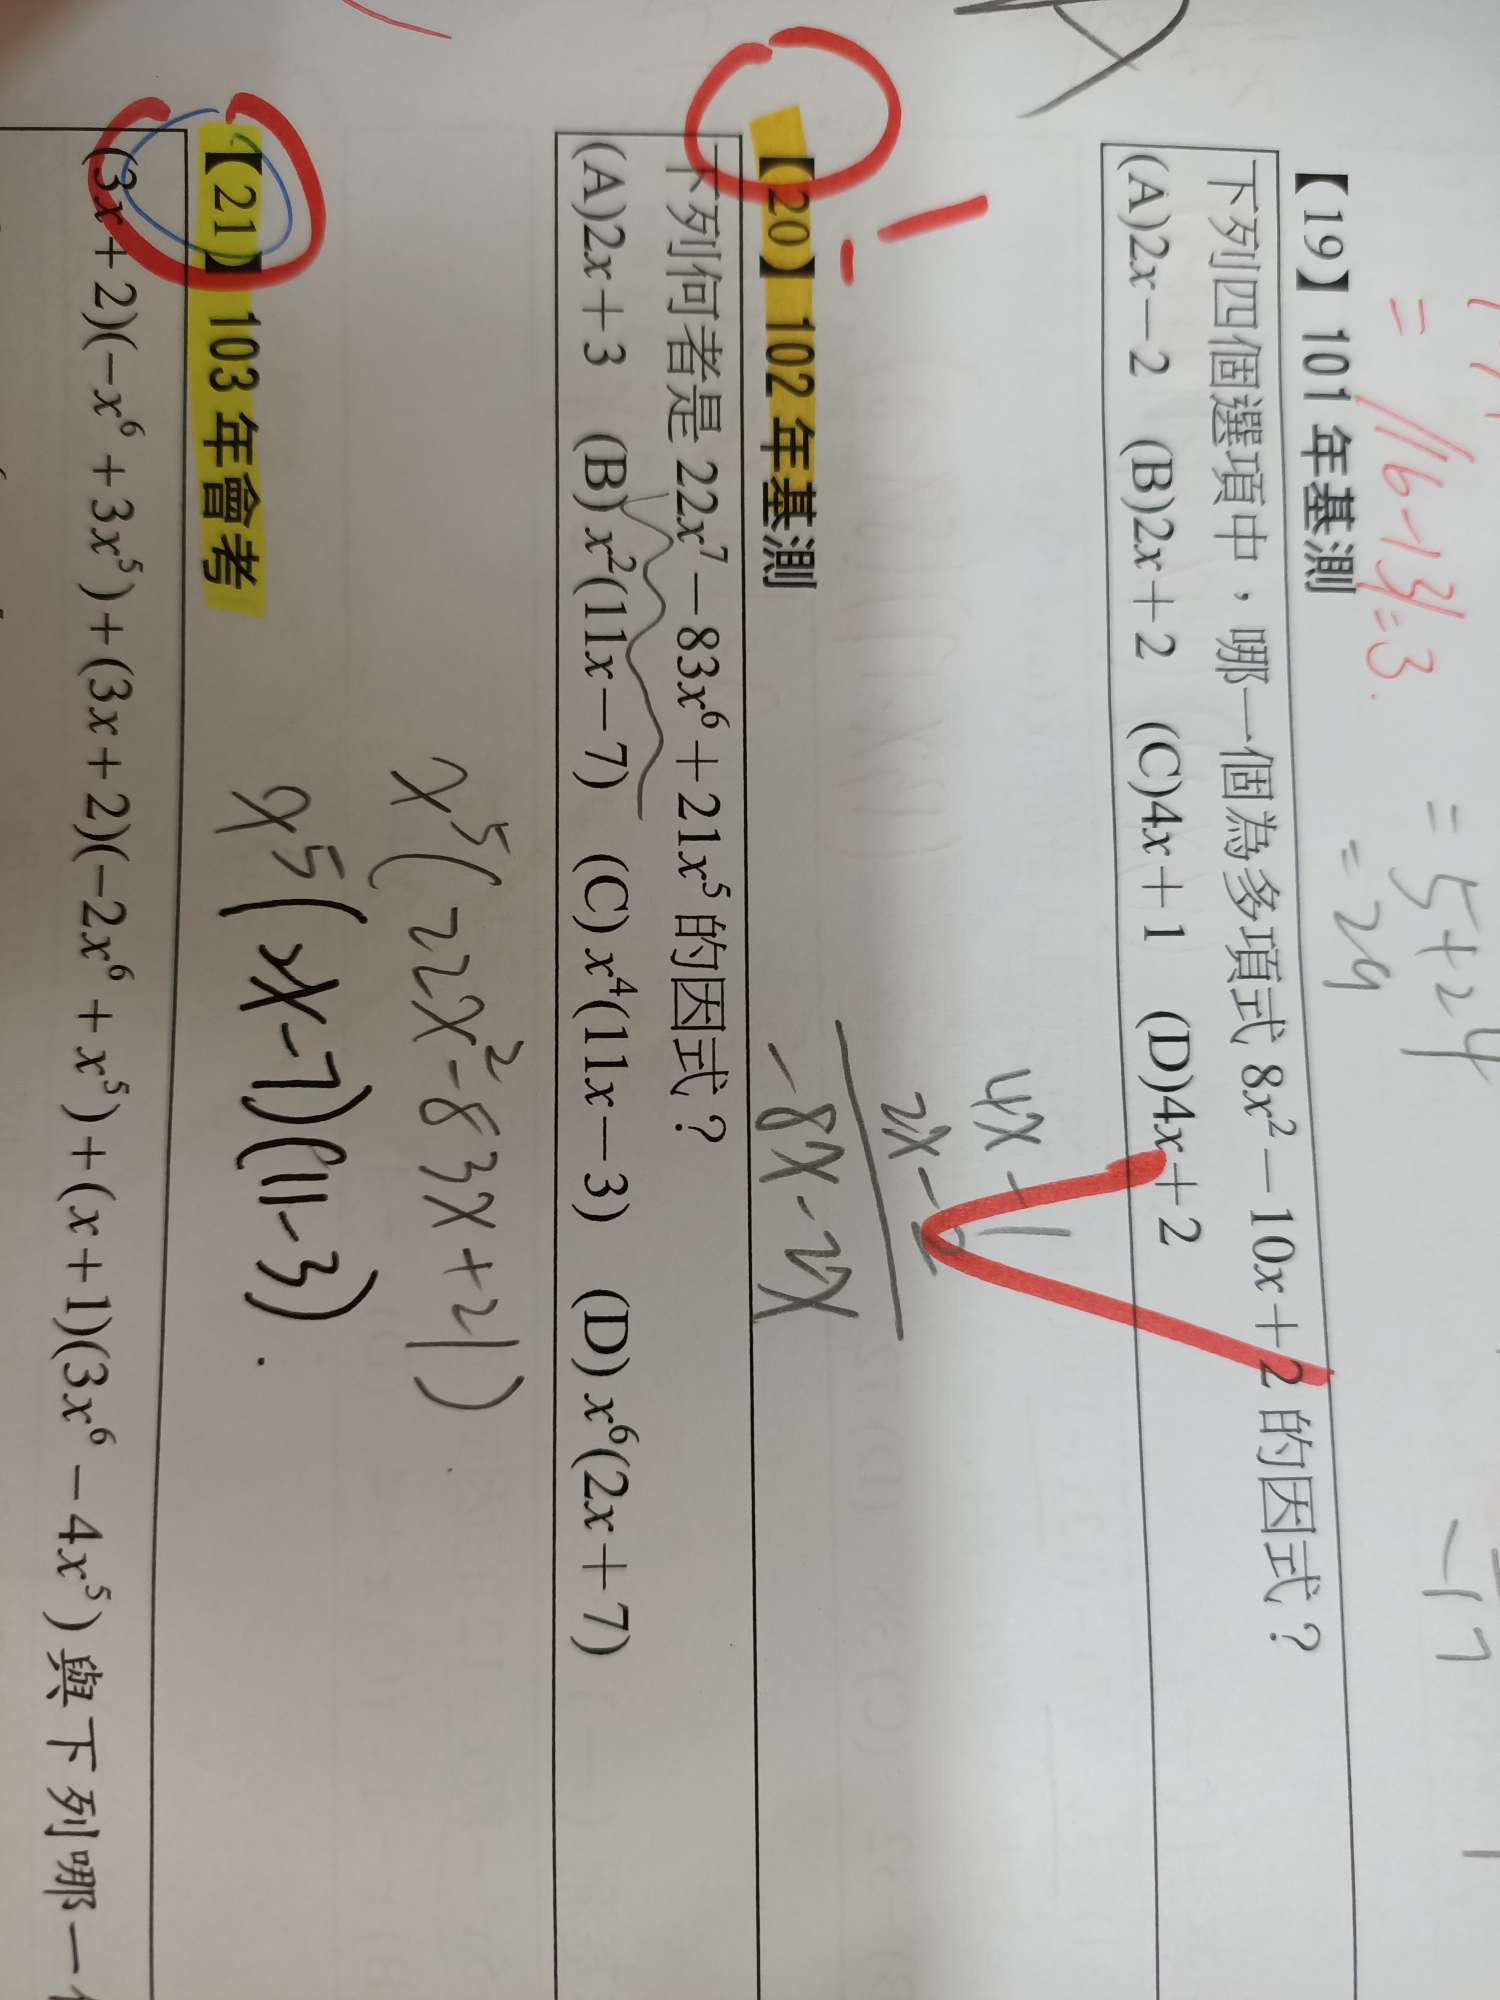 = 116-13 = 3.
= 5+24
= 29
-17
【19】101 年基測
下列四個選項中，哪一個為多項式 8x²－10x＋2 的因式？
(A)2x－2 (B)2x＋2 (C)4x＋1 (D)4x＋2
4x -1
2x -2
-8x-2x
【20】102 年基測
下列何者是 22x⁷－83x⁶＋21x⁵ 的因式？
(A)2x＋3 (B) x²(11x－7) (C) x⁴(11x－3) (D) x⁶(2x＋7)
x⁵(22x²-83x+21)
x⁵(2x-7)(11-3).
【21】103 年會考
(3x＋2)(－x⁶＋3x⁵)＋(3x＋2)(－2x⁶＋x⁵)＋(x＋1)(3x⁶－4x⁵) 與下列哪一